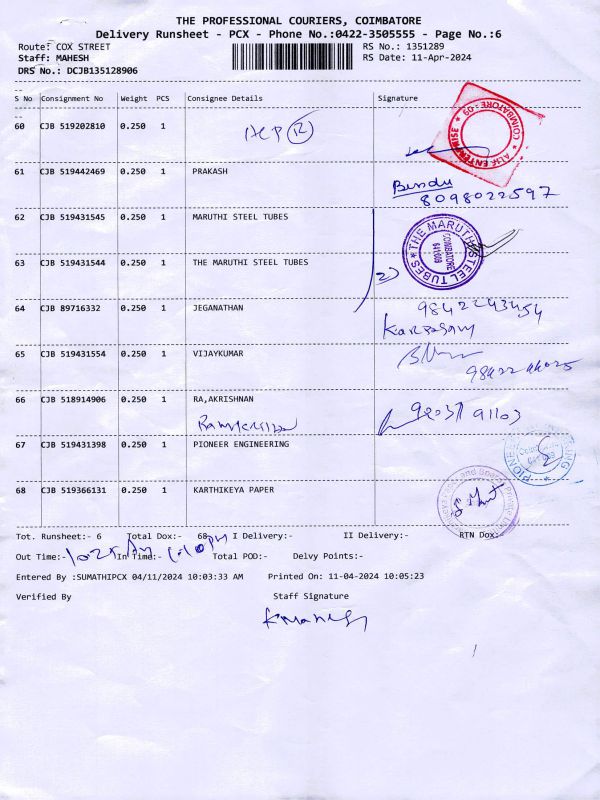 THE PROFESSIONAL COURIERS, COIMBATORE
Delivery Runsheet - PCX - Phone No.:0422-3505555 - Page No.:6
Route: COX STREET RS No.: 1351289
Staff: MAHESH RS Date: 11-Apr-2024
DRS No.: DCJB135128906
S No Consignment No Weight PCS Consignee Details Signature
60 CJB 519202810 0.250 1
ALIF ENTERPRISE * COIMBATORE - 09 *
61 CJB 519442469 0.250 1 PRAKASH Bindu
8098022597
62 CJB 519431545 0.250 1 MARUTHI STEEL TUBES
*THE MARUTHI STEEL TUBES* COIMBATORE
2)
63 CJB 519431544 0.250 1 THE MARUTHI STEEL TUBES
64 CJB 89716332 0.250 1 JEGANATHAN 9842243454
65 CJB 519431554 0.250 1 VIJAYKUMAR
66 CJB 518914906 0.250 1 RA,AKRISHNAN
67 CJB 519431398 0.250 1 PIONEER ENGINEERING
PIONEER
68 CJB 519366131 0.250 1 KARTHIKEYA PAPER
Tot. Runsheet:- 6 Total Dox:- 68 I Delivery:- II Delivery:- RTN Dox:-
Out Time:- In Time:- Total POD:- Delvy Points:-
Entered By :SUMATHIPCX 04/11/2024 10:03:33 AM Printed On: 11-04-2024 10:05:23
Verified By Staff Signature
K Mahesh